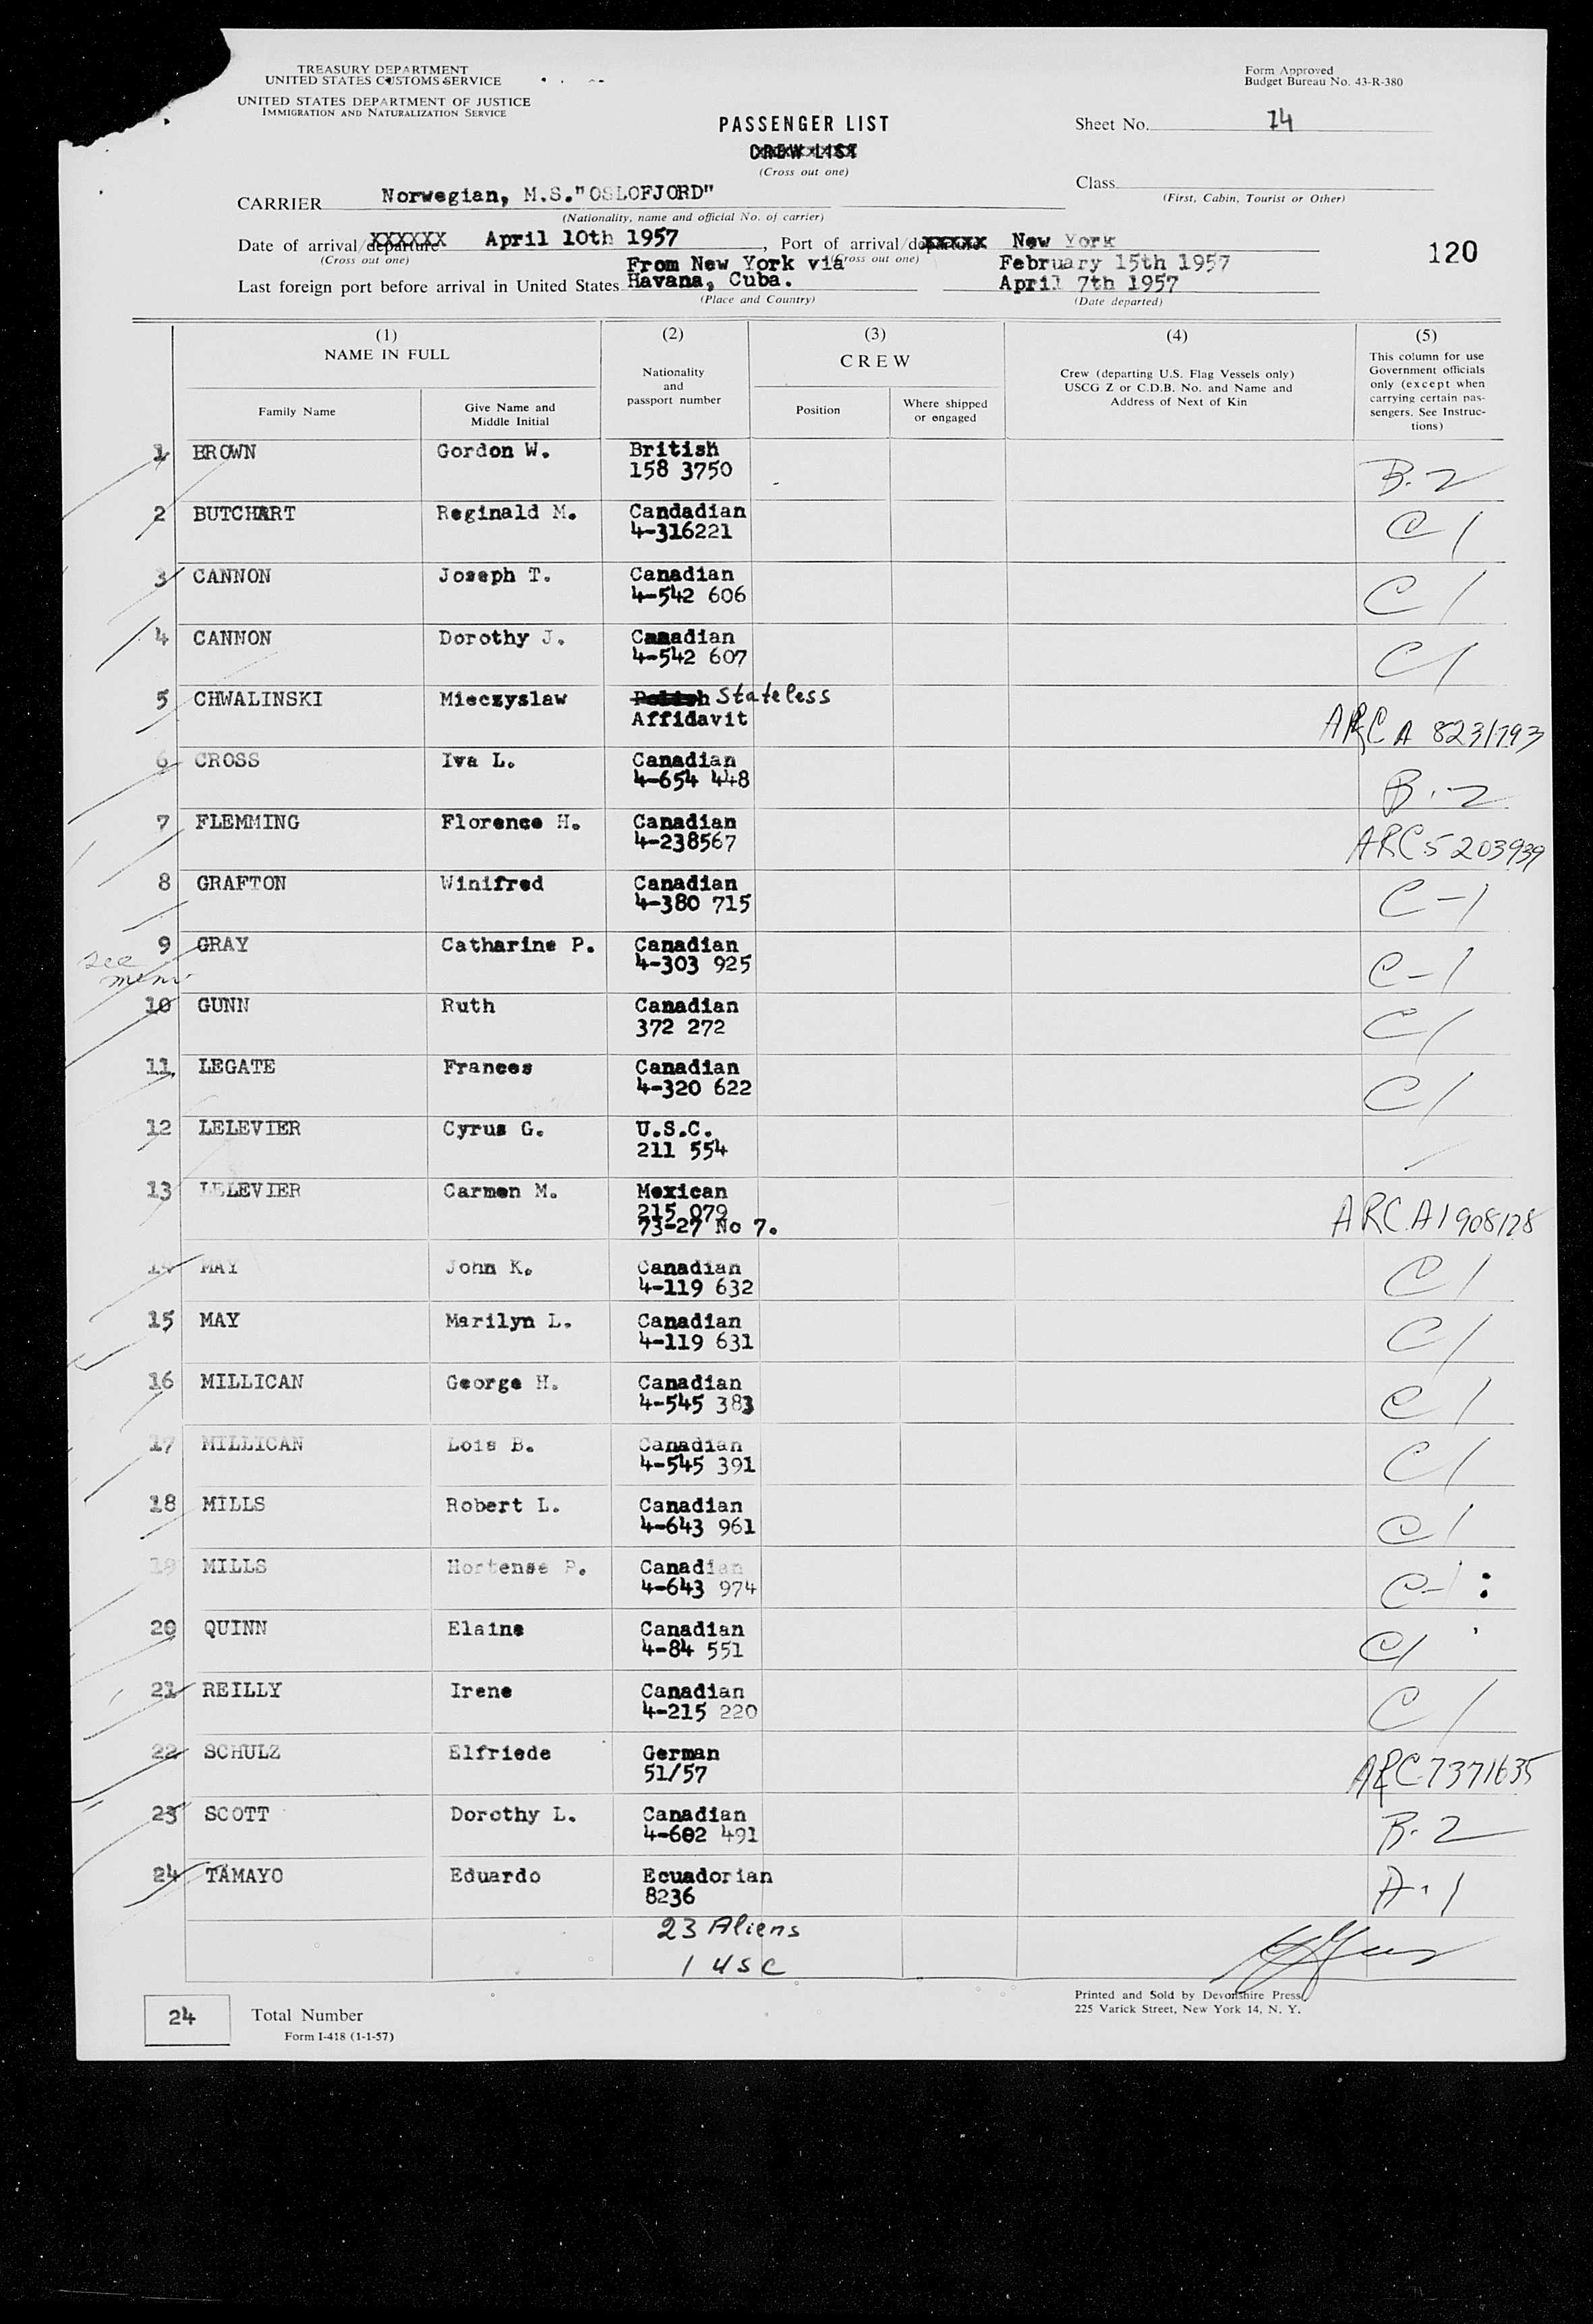 TREASURY DEPARTMENT
UNITED STATES CUSTOMS SERVICE
UNITED STATES DEPARTMENT OF JUSTICE
IMMIGRATION AND NATURALIZATION SERVICE
Form Approved
Budget Bureau No. 43-R-380
PASSENGER LIST
CREW LIST
(Cross out one)
Sheet No. 14
Class
(First, Cabin, Tourist or Other)
CARRIER Norwegian, M.S."OSLOFJORD"
(Nationality, name and official No. of carrier)
Date of arrival/departure April 10th 1957, Port of arrival/departure New York
(Cross out one) (Cross out one)
120
From New York via February 15th 1957
Last foreign port before arrival in United States Havana, Cuba. April 7th 1957
(Place and Country) (Date departed)
(1) (2) (3) (4) (5)
NAME IN FULL
Family Name
Give Name and
Middle Initial
Nationality
and
passport number
CREW
Position
Where shipped
or engaged
Crew (departing U.S. Flag Vessels only)
USCG Z or C.D.B. No. and Name and
Address of Next of Kin
This column for use
Government officials
only (except when
carrying certain pas-
sengers. See Instruc-
tions)
1 BROWN Gordon W. British
158 3750 B-2
2 BUTCHART Reginald M. Candadian
4-316221 C 1
3 CANNON Joseph T. Canadian
4-542 606 C 1
4 CANNON Dorothy J. Canadian
4-542 607 C 1
5 CHWALINSKI Mieczyslaw Polish Stateless
Affidavit ARC A 8231793
6 CROSS Iva L. Canadian
4-654 448 B-2
7 FLEMMING Florence H. Canadian
4-238567 ARC 5203939
8 GRAFTON Winifred Canadian
4-380 715 C-1
9 GRAY Catharine P. Canadian
see 4-303 925 C-1
10 GUNN Ruth Canadian
372 272 C 1
11 LEGATE Frances Canadian
4-320 622 C 1
12 LELEVIER Cyrus G. U.S.C.
211 554
13 LELEVIER Carmen M. Mexican
215 079
73-27 No 7. ARC A1908128
14 MAY John K. Canadian
4-119 632 C 1
15 MAY Marilyn L. Canadian
4-119 631 C 1
16 MILLICAN George H. Canadian
4-545 383 C 1
17 MILLICAN Lois B. Canadian
4-545 391 C 1
18 MILLS Robert L. Canadian
4-643 961 C 1
19 MILLS Hortense P. Canadian
4-643 974 C-1
20 QUINN Elaine Canadian
4-84 551 C 1
21 REILLY Irene Canadian
4-215 220 C 1
22 SCHULZ Elfriede German
51/57 ARC 7371635
23 SCOTT Dorothy L. Canadian
4-602 491 B-2
24 TAMAYO Eduardo Ecuadorian
8236 A-1
23 Aliens
1 USC
24 Total Number
Form I-418 (1-1-57)
Printed and Sold by Devonshire Press
225 Varick Street, New York 14, N. Y.